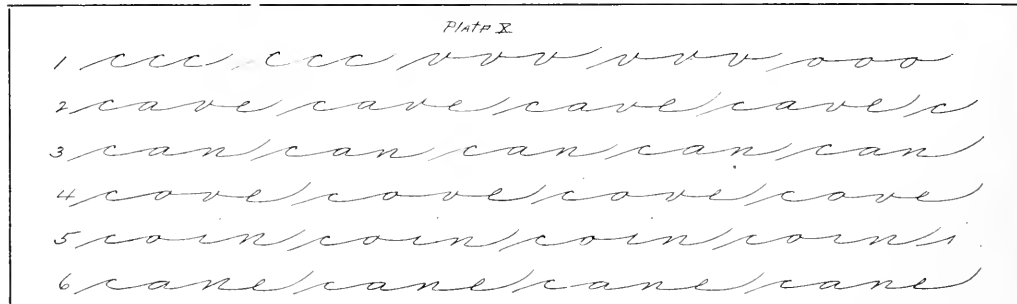 Plate X
1 ccc ccc vvv vvv ooo
2 cave cave cave cave c
3 can can can can can
4 cove cove cove cove
5 coin coin coin coin
6 cane cane cane cane